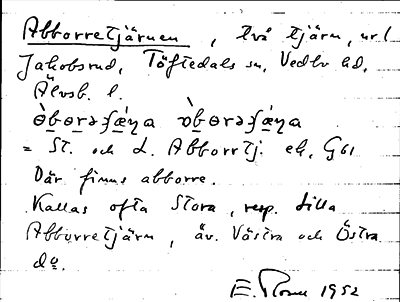 Abborretjärnen, två tjärn, ur l
Jakobsrud, Töftedals sn, Vedbo hd,
Älvsb. l.
ò̀bɵrəʃæ̀ɳa  ɒ̀bɵrəʃæ̀ɳa
= St. och L. Abborrtj. ek, G61
Där finns abborre.
Kallas ofta Stora, resp. Lilla
Abborretjärn, äv. Västra och Östra
do.
E. 1952